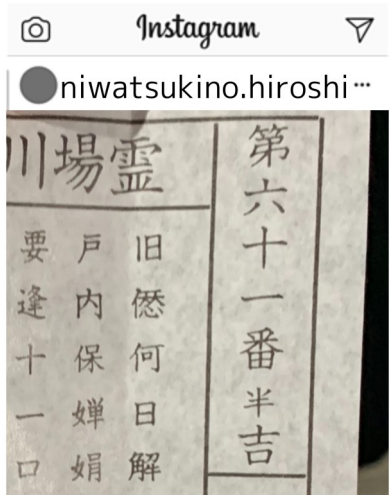 Instagram
niwatsukino.hiroshi…
第六十一番半吉
霊場川
旧愆何日解
戸内保嬋娟
要逢十一口